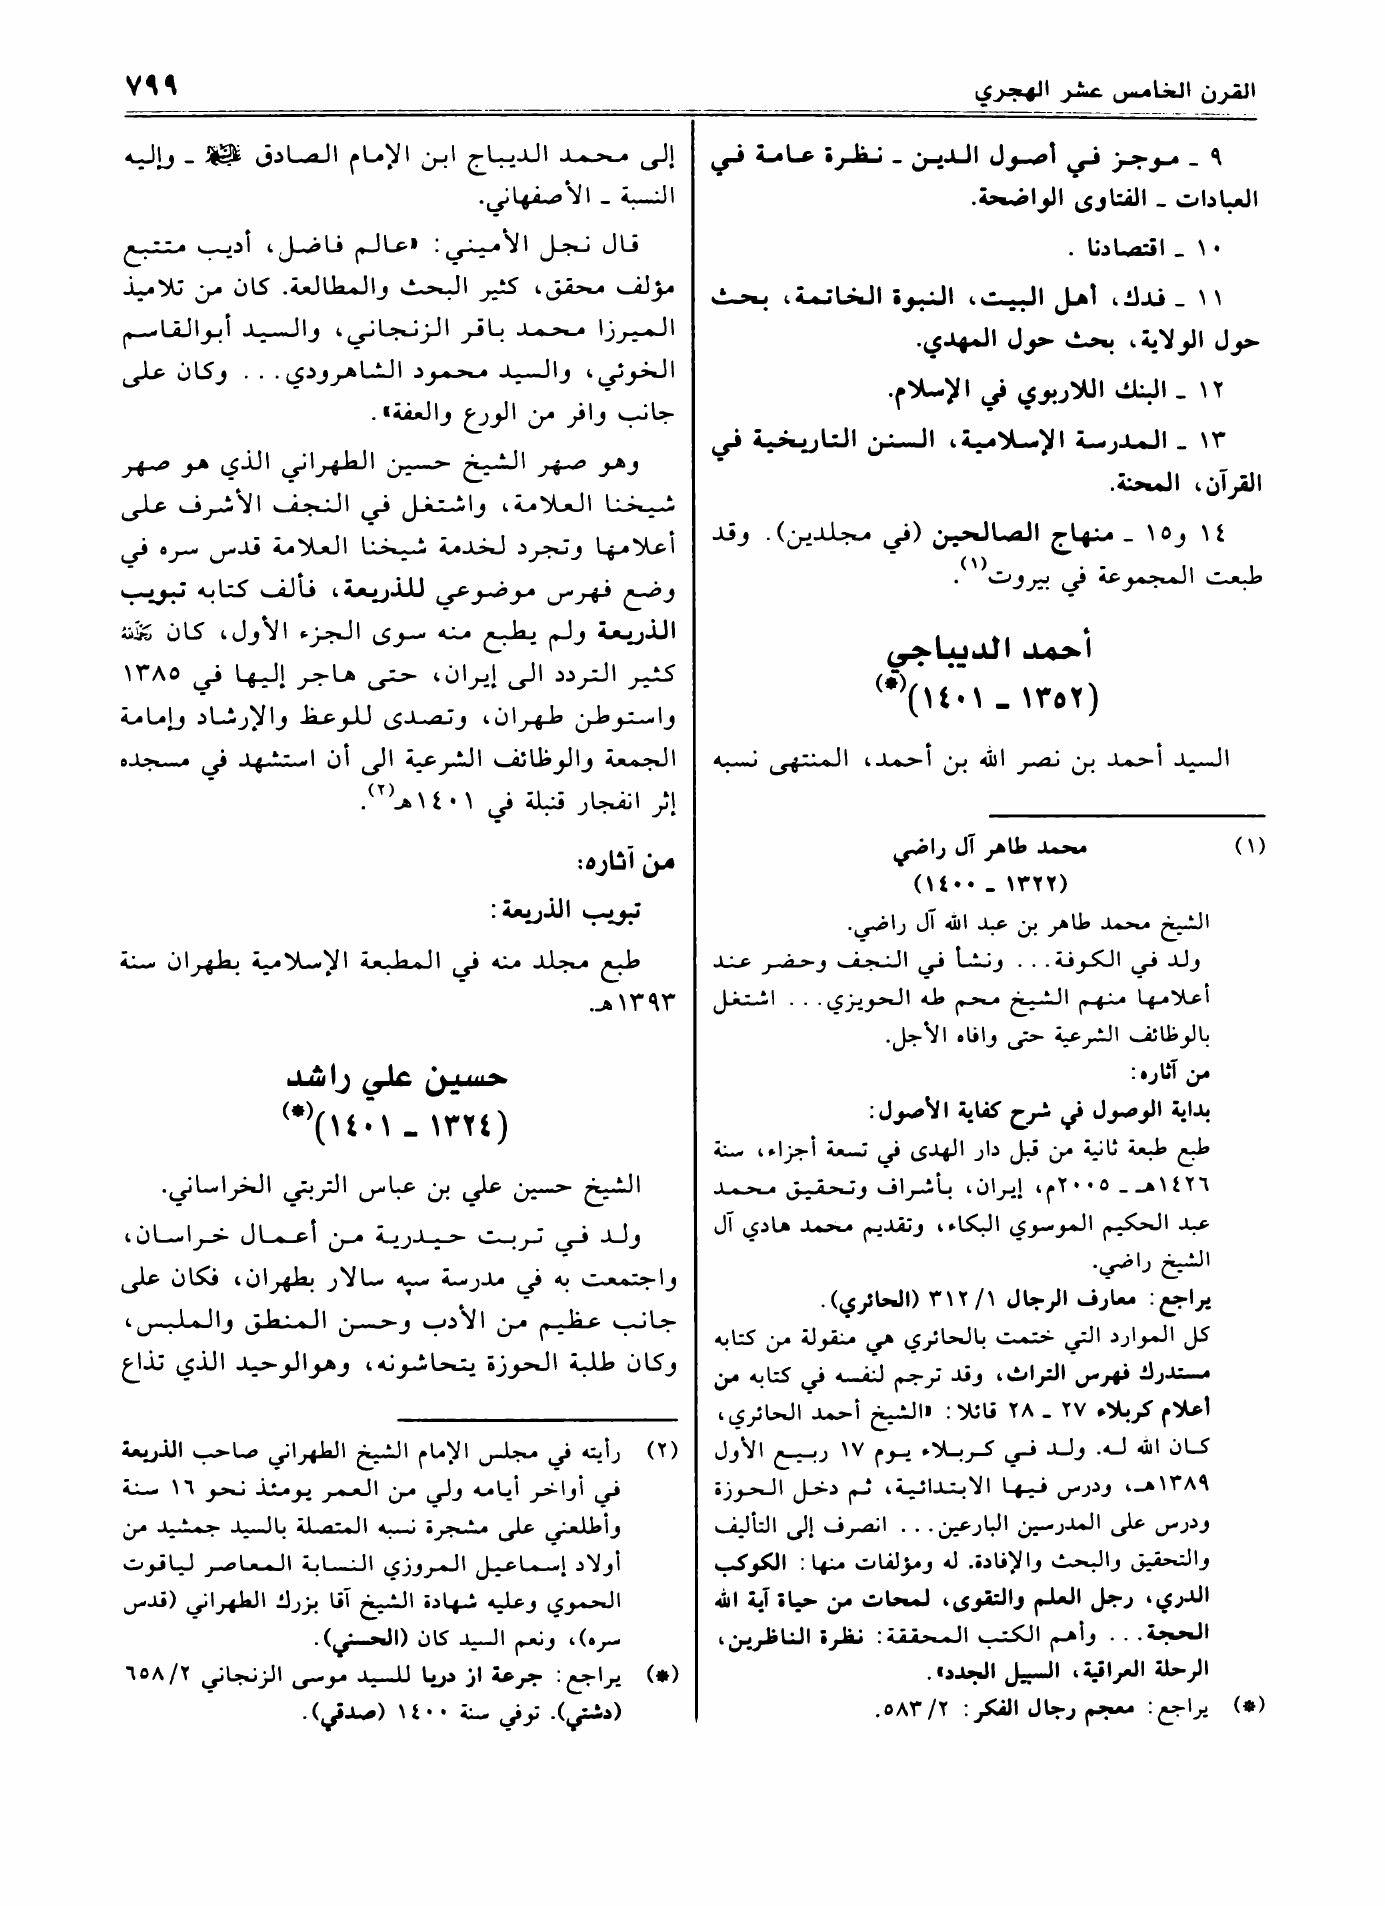 القرن الخامس عشر الهجري
٧٩٩
٩ ـ موجز في أصول الدين ـ نظرة عامة في
العبادات ـ الفتاوى الواضحة.
١٠ ـ اقتصادنا .
١١ ـ فدك، أهل البيت، النبوة الخاتمة، بحث
حول الولاية، بحث حول المهدي.
١٢ ـ البنك اللاربوي في الإسلام.
١٣ ـ المدرسة الإسلامية، السنن التاريخية في
القرآن، المحنة.
١٤ و١٥ ـ منهاج الصالحين (في مجلدين). وقد
طبعت المجموعة في بيروت(١).
أحمد الديباجي
(١٣٥٢ ـ ١٤٠١)(*)
السيد أحمد بن نصر الله بن أحمد، المنتهى نسبه
(١) محمد طاهر آل راضي
(١٣٢٢ ـ ١٤٠٠)
الشيخ محمد طاهر بن عبد الله آل راضي.
ولد في الكوفة... ونشأ في النجف وحضر عند
أعلامها منهم الشيخ محم طه الحويزي... اشتغل
بالوظائف الشرعية حتى وافاه الأجل.
من آثاره:
بداية الوصول في شرح كفاية الأصول:
طبع طبعة ثانية من قبل دار الهدى في تسعة أجزاء، سنة
١٤٢٦هـ ـ ٢٠٠٥م، إيران، بأشراف وتحقيق محمد
عبد الحكيم الموسوي البكاء، وتقديم محمد هادي آل
الشيخ راضي.
يراجع: معارف الرجال ١/ ٣١٢ (الحائري).
كل الموارد التي ختمت بالحائري هي منقولة من كتابه
مستدرك فهرس التراث، وقد ترجم لنفسه في كتابه من
أعلام كربلاء ٢٧ ـ ٢٨ قائلا: «الشيخ أحمد الحائري،
كان الله له. ولد في كربلاء يوم ١٧ ربيع الأول
١٣٨٩هـ، ودرس فيها الابتدائية، ثم دخل الحوزة
ودرس على المدرسين البارعين... انصرف إلى التأليف
والتحقيق والبحث والإفادة. له ومؤلفات منها: الكوكب
الدري، رجل العلم والتقوى، لمحات من حياة آية الله
الحجة... وأهم الكتب المحققة: نظرة الناظرين،
الرحلة العراقية، السبيل الجدد».
(*) يراجع: معجم رجال الفكر: ٢/ ٥٨٣.
إلى محمد الديباج ابن الإمام الصادق ـ وإليه
النسبة ـ الأصفهاني.
قال نجل الأميني: «عالم فاضل، أديب متتبع
مؤلف محقق، كثير البحث والمطالعة. كان من تلاميذ
الميرزا محمد باقر الزنجاني، والسيد أبوالقاسم
الخوئي، والسيد محمود الشاهرودي... وكان على
جانب وافر من الورع والعفة».
وهو صهر الشيخ حسين الطهراني الذي هو صهر
شيخنا العلامة، واشتغل في النجف الأشرف على
أعلامها وتجرد لخدمة شيخنا العلامة قدس سره في
وضع فهرس موضوعي للذريعة، فألف كتابه تبويب
الذريعة ولم يطبع منه سوى الجزء الأول، كان رحمه الله
كثير التردد الى إيران، حتى هاجر إليها في ١٣٨٥
واستوطن طهران، وتصدى للوعظ والإرشاد وإمامة
الجمعة والوظائف الشرعية الى أن استشهد في مسجده
إثر انفجار قنبلة في ١٤٠١هـ(٢).
من آثاره:
تبويب الذريعة:
طبع مجلد منه في المطبعة الإسلامية بطهران سنة
١٣٩٣هـ.
حسين علي راشد
(١٣٢٤ ـ ١٤٠١)(*)
الشيخ حسين علي بن عباس التربتي الخراساني.
ولد في تربت حيدرية من أعمال خراسان،
واجتمعت به في مدرسة سپه سالار بطهران، فكان على
جانب عظيم من الأدب وحسن المنطق والملبس،
وكان طلبة الحوزة يتحاشونه، وهوالوحيد الذي تذاع
(٢) رأيته في مجلس الإمام الشيخ الطهراني صاحب الذريعة
في أواخر أيامه ولي من العمر يومئذ نحو ١٦ سنة
وأطلعني على مشجرة نسبه المتصلة بالسيد جمشيد من
أولاد إسماعيل المروزي النسابة المعاصر لياقوت
الحموي وعليه شهادة الشيخ آقا بزرك الطهراني (قدس
سره)، ونعم السيد كان (الحسني).
(*) يراجع: جرعة از دريا للسيد موسى الزنجاني ٢/ ٦٥٨
(دشتي). توفي سنة ١٤٠٠ (صدقي).